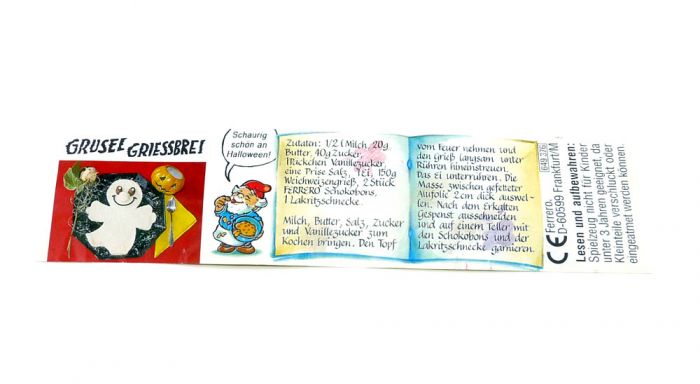 GRUSEL GRIESSBREI
Schaurig
schön an
Halloween!
Zutaten: 1/2 l Milch, 20g
Butter, 40g Zucker,
1 Päckchen Vanillezucker,
eine Prise Salz, 1 Ei, 150g
Weichweizengrieß, 2 Stück
FERRERO Schokobons,
1 Lakritzschnecke.
Milch, Butter, Salz, Zucker
und Vanillezucker zum
Kochen bringen. Den Topf
vom Feuer nehmen und
den Grieß langsam unter
Rühren hineinstreuen.
Das Ei unterrühren. Die
Masse zwischen gefetteter
Alufolie 2cm dick auswel-
len. Nach dem Erkalten
Gespenst ausschneiden
und auf einem Teller mit
den Schokobons und der
Lakritzschnecke garnieren.
649 376
CE Ferrero.
D-60599 Frankfurt/M
Lesen und aufbewahren:
Spielzeug nicht für Kinder
unter 3 Jahren geeignet, da
Kleinteile verschluckt oder
eingeatmet werden können.